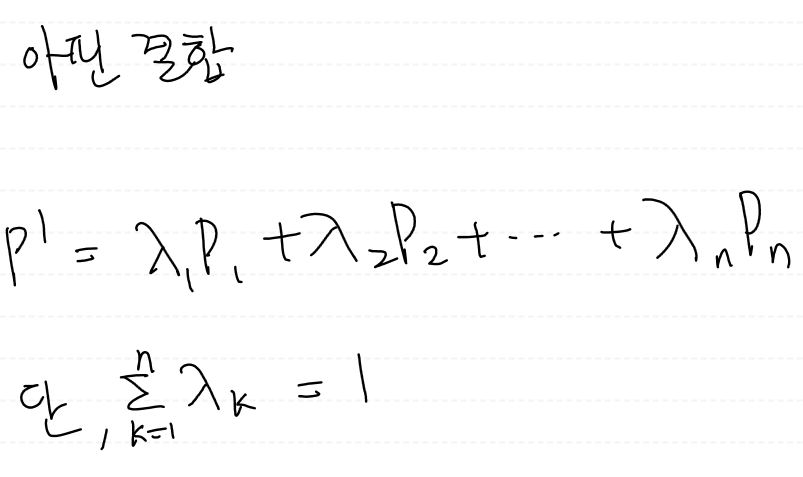 아핀 결합
P' = λ₁P₁ + λ₂P₂ + ··· + λₙPₙ
단, ∑ₖ₌₁ⁿ λₖ = 1